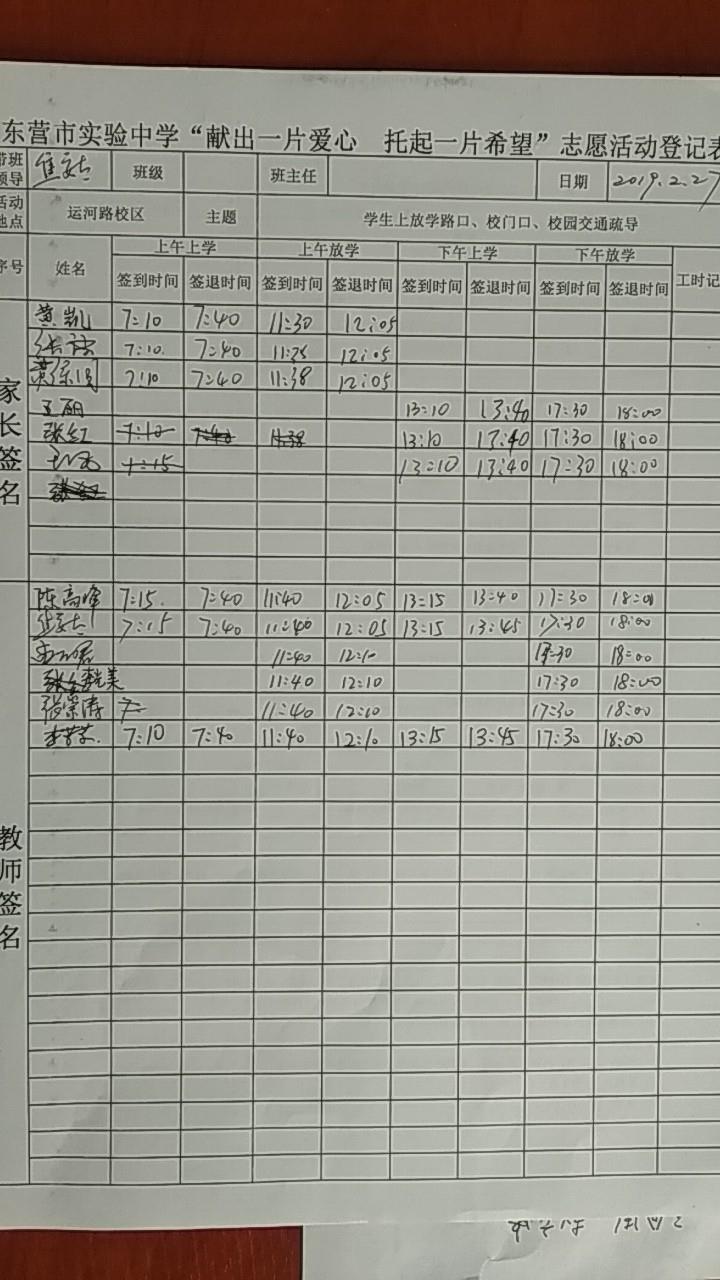 东营市实验中学“献出一片爱心 托起一片希望”志愿活动登记表
带班领导 班级 班主任 日期 2019.2.27
活动地点 运河路校区 主题 学生上放学路口、校门口、校园交通疏导
序号 姓名 上午上学 上午放学 下午上学 下午放学 工时记
签到时间 签退时间 签到时间 签退时间 签到时间 签退时间 签到时间 签退时间
家长签名
黄凯 7:10 7:40 11:30 12:05
7:10 7:40 11:38 12:05
7:10 7:40 11:38 12:05
王丽 13:10 13:40 17:30 18:00
张红 7:10 7:40 11:38 13:10 13:40 17:30 18:00
7:15 13:10 13:40 17:30 18:00
教师签名
陈高峰 7:15 7:40 11:40 12:05 13:15 13:40 17:30 18:00
7:15 7:40 11:40 12:05 13:15 13:45 17:30 18:00
11:40 12:10 17:30 18:00
11:40 12:10 17:30 18:00
张崇涛 7: 11:40 12:10 17:30 18:00
7:10 7:40 11:40 12:10 13:15 13:45 17:30 18:00